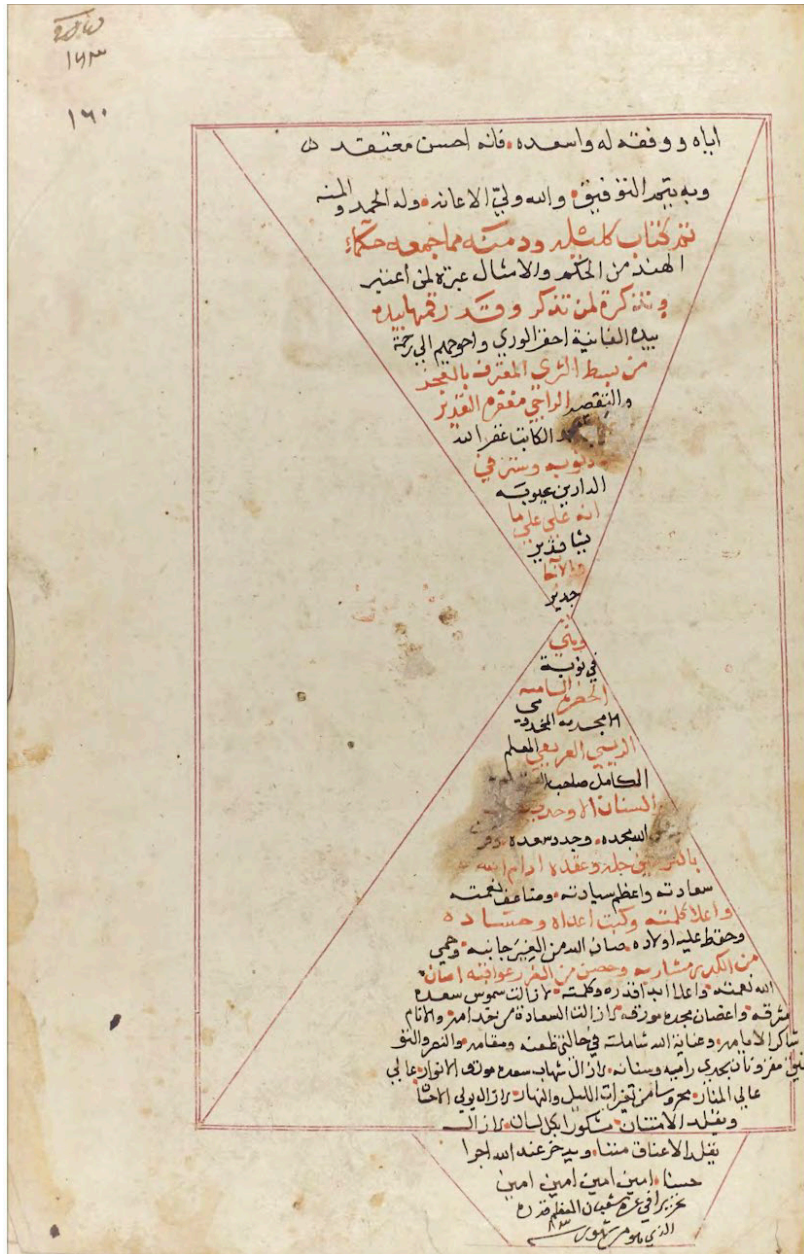 ١٦٣
١٦٠
اياه ووفقه له واسعده فانه احسن معتقد
وبه يتم التوفيق والله ولي الاعانه وله الحمد والمنه
تم كتاب كليله ودمنه مما جمعه حكماء
الهند من الحكم والامثال عبرة لمن اعتبر
وتذكرة لمن تذكر وقد رقمها بيده
بيده الفانية احقر الوري واحوجهم الي رحمة
من بسط الثري المعترف بالعجز
والتقصير الراجي مغفرة القدير
الكاتب غفر الله
ذنوبه وستر في
الدارين عيوبه
انه علي علي ما
يشا قدير
جدير
في نوبة
الامجديه المخدو
المعلم
الكامل صاحب
السنان الاوحدي
الله مجده وجدد سعده
حله وعقده ادام الله
سعادته واعظم سيادته وضاعف نعمته
واعلا كلمته وكبت اعداه وحساده
وحفظ عليه اولاده صان الله من الغير جانبه وحمي
من الكدر مشاربه وحصن من الغرر عواقبه
الله نعمته واعلا ابدا قدره وكلمته لا زالت شموس سعده
مشرقه واغصان مجده مورقه لا زالت السعادة من خدامه والانام
شاكر الايامه وعناية الله شاملته في حالتي ظعنه ومقامه والنصر والتو
فيق مقرونان وسنانه لا زال شهاب سعده الانوار عالي
عالي المنار محروسا من تغيرات الليل والنهار لا زال يولي
ويقلد الامتنان مشكورا بكل لسان لا زال
يقلد الاعناق مننا ويدخر عند الله اجرا
حسنا امين امين امين امين
تحريرا في غرة شعبان المعظم قدره
الذي هو من شهور